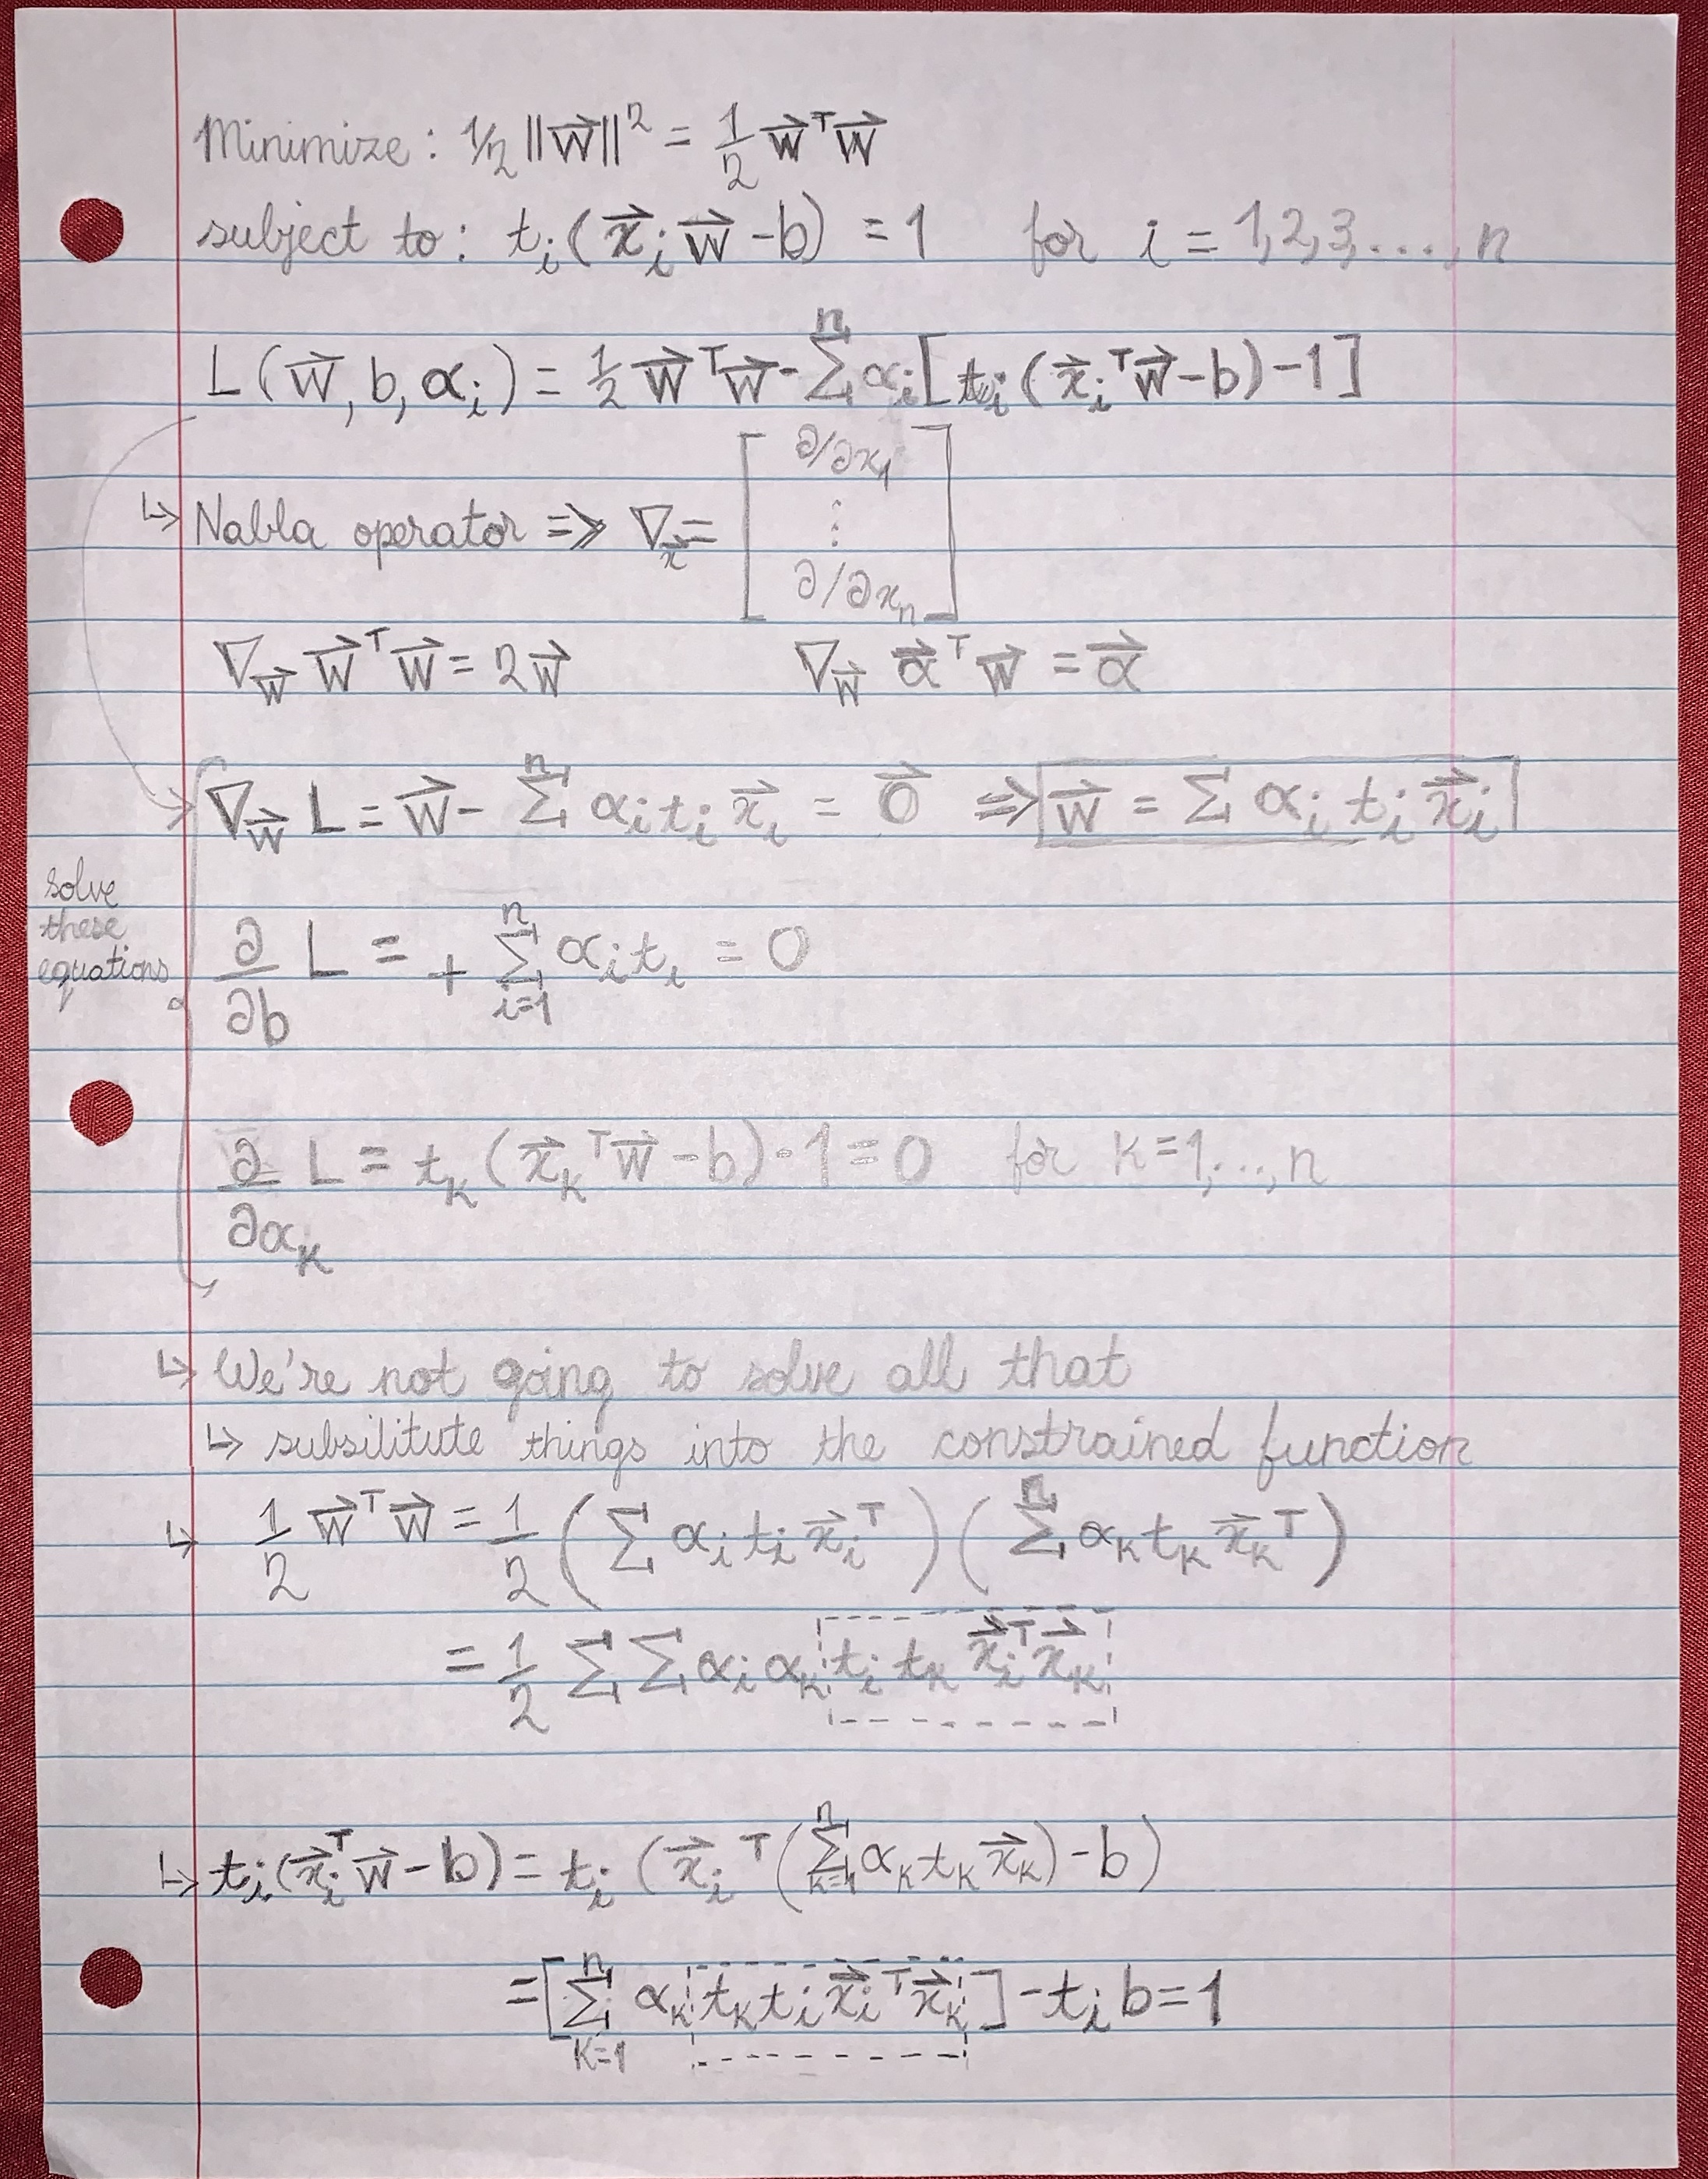 Minimize: 1/2 ||w⃗||² = 1/2 w⃗ᵀw⃗
subject to: tᵢ(x⃗ᵢw⃗ - b) = 1 for i = 1,2,3,...., n
L(w⃗, b, αᵢ) = 1/2 w⃗ᵀw⃗ - Σⁿ αᵢ[tᵢ(x⃗ᵢᵀw⃗ - b) - 1]
↳ Nabla operator => ∇ₓ⃗ = [∂/∂x₁ ⋮ ∂/∂xₙ]
∇w⃗ w⃗ᵀw⃗ = 2w⃗ ∇w⃗ α⃗ᵀw⃗ = α⃗
∇w⃗ L = w⃗ - Σⁿ αᵢtᵢx⃗ᵢ = 0⃗ => w⃗ = Σ αᵢ tᵢ x⃗ᵢ
solve
these
equations
∂/∂b L = + Σⁿᵢ₌₁ αᵢtᵢ = 0
∂/∂αₖ L = tₖ(x⃗ₖᵀw⃗ - b) - 1 = 0 for k = 1,...,n
↳ We're not going to solve all that
↳ subsilitute things into the constrained function
↳ 1/2 w⃗ᵀw⃗ = 1/2 (Σ αᵢtᵢx⃗ᵢᵀ)(Σⁿ αₖtₖx⃗ₖᵀ)
= 1/2 ΣΣ αᵢαₖ tᵢtₖ x⃗ᵢᵀx⃗ₖ
↳ tᵢ(x⃗ᵢᵀw⃗ - b) = tᵢ(x⃗ᵢᵀ(Σⁿₖ₌₁ αₖtₖx⃗ₖ) - b)
= [Σⁿₖ₌₁ αₖ tₖtᵢx⃗ᵢᵀx⃗ₖ] - tᵢb = 1